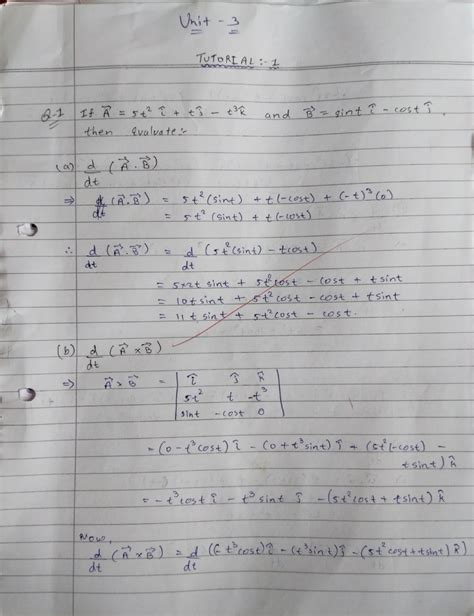 Unit - 3
TUTORIAL :- 1
Q-1 If A⃗ = 5t² î + tĵ - t³k̂ and B⃗ = sint î - cost ĵ,
then evaluate:-
(a) d/dt (A⃗ . B⃗)
⇒ d/dt (A⃗ . B⃗) = 5t² (sint) + t (-cost) + (-t)³ (0)
= 5t² (sint) + t (-cost)
∴ d/dt (A⃗ . B⃗) = d/dt (5t² (sint) - tcost)
= 5×2t sint + 5t² cost - cost + tsint
= 10t sint + 5t² cost - cost + t sint
= 11t sint + 5t² cost - cost.
(b) d/dt (A⃗ × B⃗)
⇒ A⃗ × B⃗ = | î ĵ k̂ |
| 5t² t -t³ |
| sint -cost 0 |
= (0 - t³ cost) î - (0 + t³ sint) ĵ + (5t² (-cost) -
t sint) k̂
= - t³ cost î - t³ sint ĵ - (5t² cost + t sint) k̂
Now,
d/dt (A⃗ × B⃗) = d/dt ((- t³ cost) î - (t³ sint) ĵ - (5t² cost + tsint) k̂)